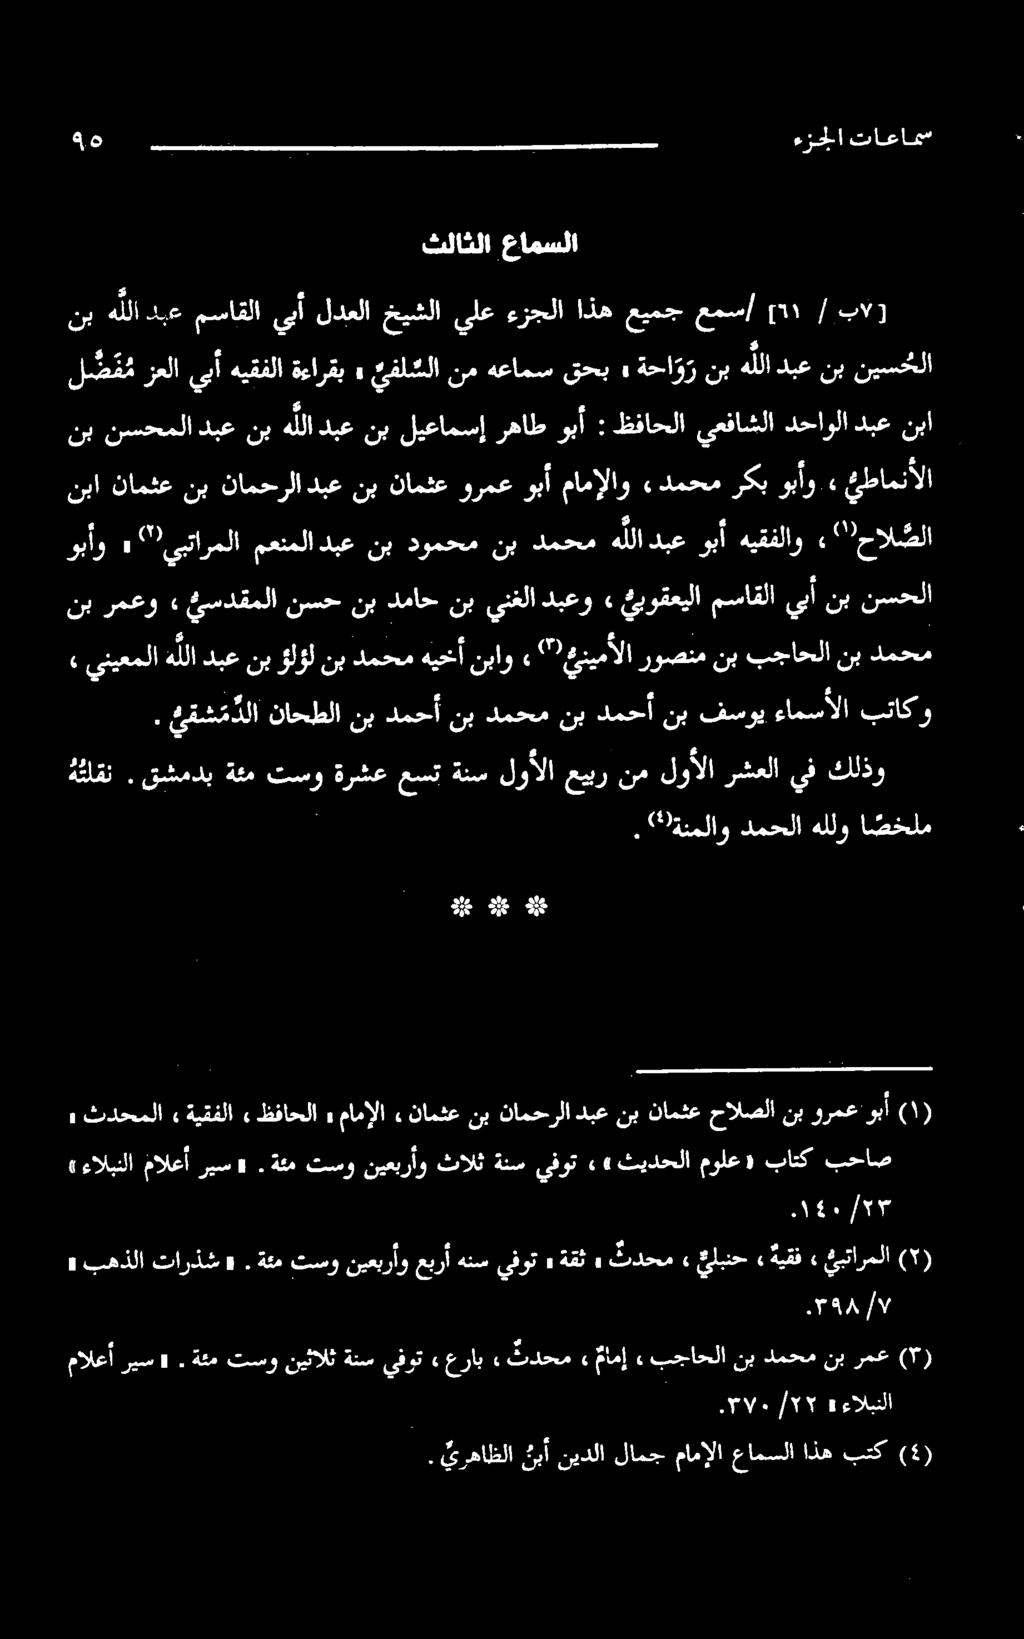 سماعات الجزء ٩٥
السماع الثالث
[٧ب / ٦١] /سمع جميع هذا الجزء علي الشيخ العدل أبي القاسم عبد اللَّه بن
الحُسين بن عبد اللَّه بن رَوَاحة ، بحق سماعه من السِّلفيِّ ، بقراءة الفقيه أبي العز مُفَضَّل
ابن عبد الواحد الشافعي الحافظ : أبو طاهر إسماعيل بن عبد اللَّه بن عبد المحسن بن
الأنماطيُّ ، وأبو بكر محمد ، والإمام أبو عمرو عثمان بن عبد الرحمان بن عثمان ابن
الصَّلاح(١) ، والفقيه أبو عبد اللَّه محمد بن محمود بن عبد المنعم المراتبي(٢) ، وأبو
الحسن بن أبي القاسم اليعقوبيُّ ، وعبد الغني بن حامد بن حسن المقدسيُّ ، وعمر بن
محمد بن الحاجب بن منصور الأمينيُّ(٣) ، وابن أخيه محمد بن لؤلؤ بن عبد اللَّه المعيني ،
وكاتب الأسماء يوسف بن أحمد بن محمد بن أحمد بن الطحان الدِّمَشقيُّ .
وذلك في العشر الأول من ربيع الأول سنة تسع عشرة وست مئة بدمشق . نقلتُهُ
ملخصًا ولله الحمد والمنة(٤) .
(١) أبو عمرو بن الصلاح عثمان بن عبد الرحمان بن عثمان ، الإمام ، الحافظ ، الفقية ، المحدث ،
صاحب كتاب « علوم الحديث » ، توفي سنة ثلاث وأربعين وست مئة . « سير أعلام النبلاء »
٢٣/ ١٤٠.
(٢) المراتبيُّ ، فقيهٌ ، حنبليٌّ ، محدثٌ ، ثقة ، توفي سنه أربع وأربعين وست مئة . « شذرات الذهب »
٧/ ٣٩٨.
(٣) عمر بن محمد بن الحاجب ، إمامٌ ، محدثٌ ، بارع ، توفي سنة ثلاثين وست مئة . « سير أعلام
النبلاء » ٢٢/ ٣٧٠.
(٤) كتب هذا السماع الإمام جمال الدين أبنُ الظاهريِّ .